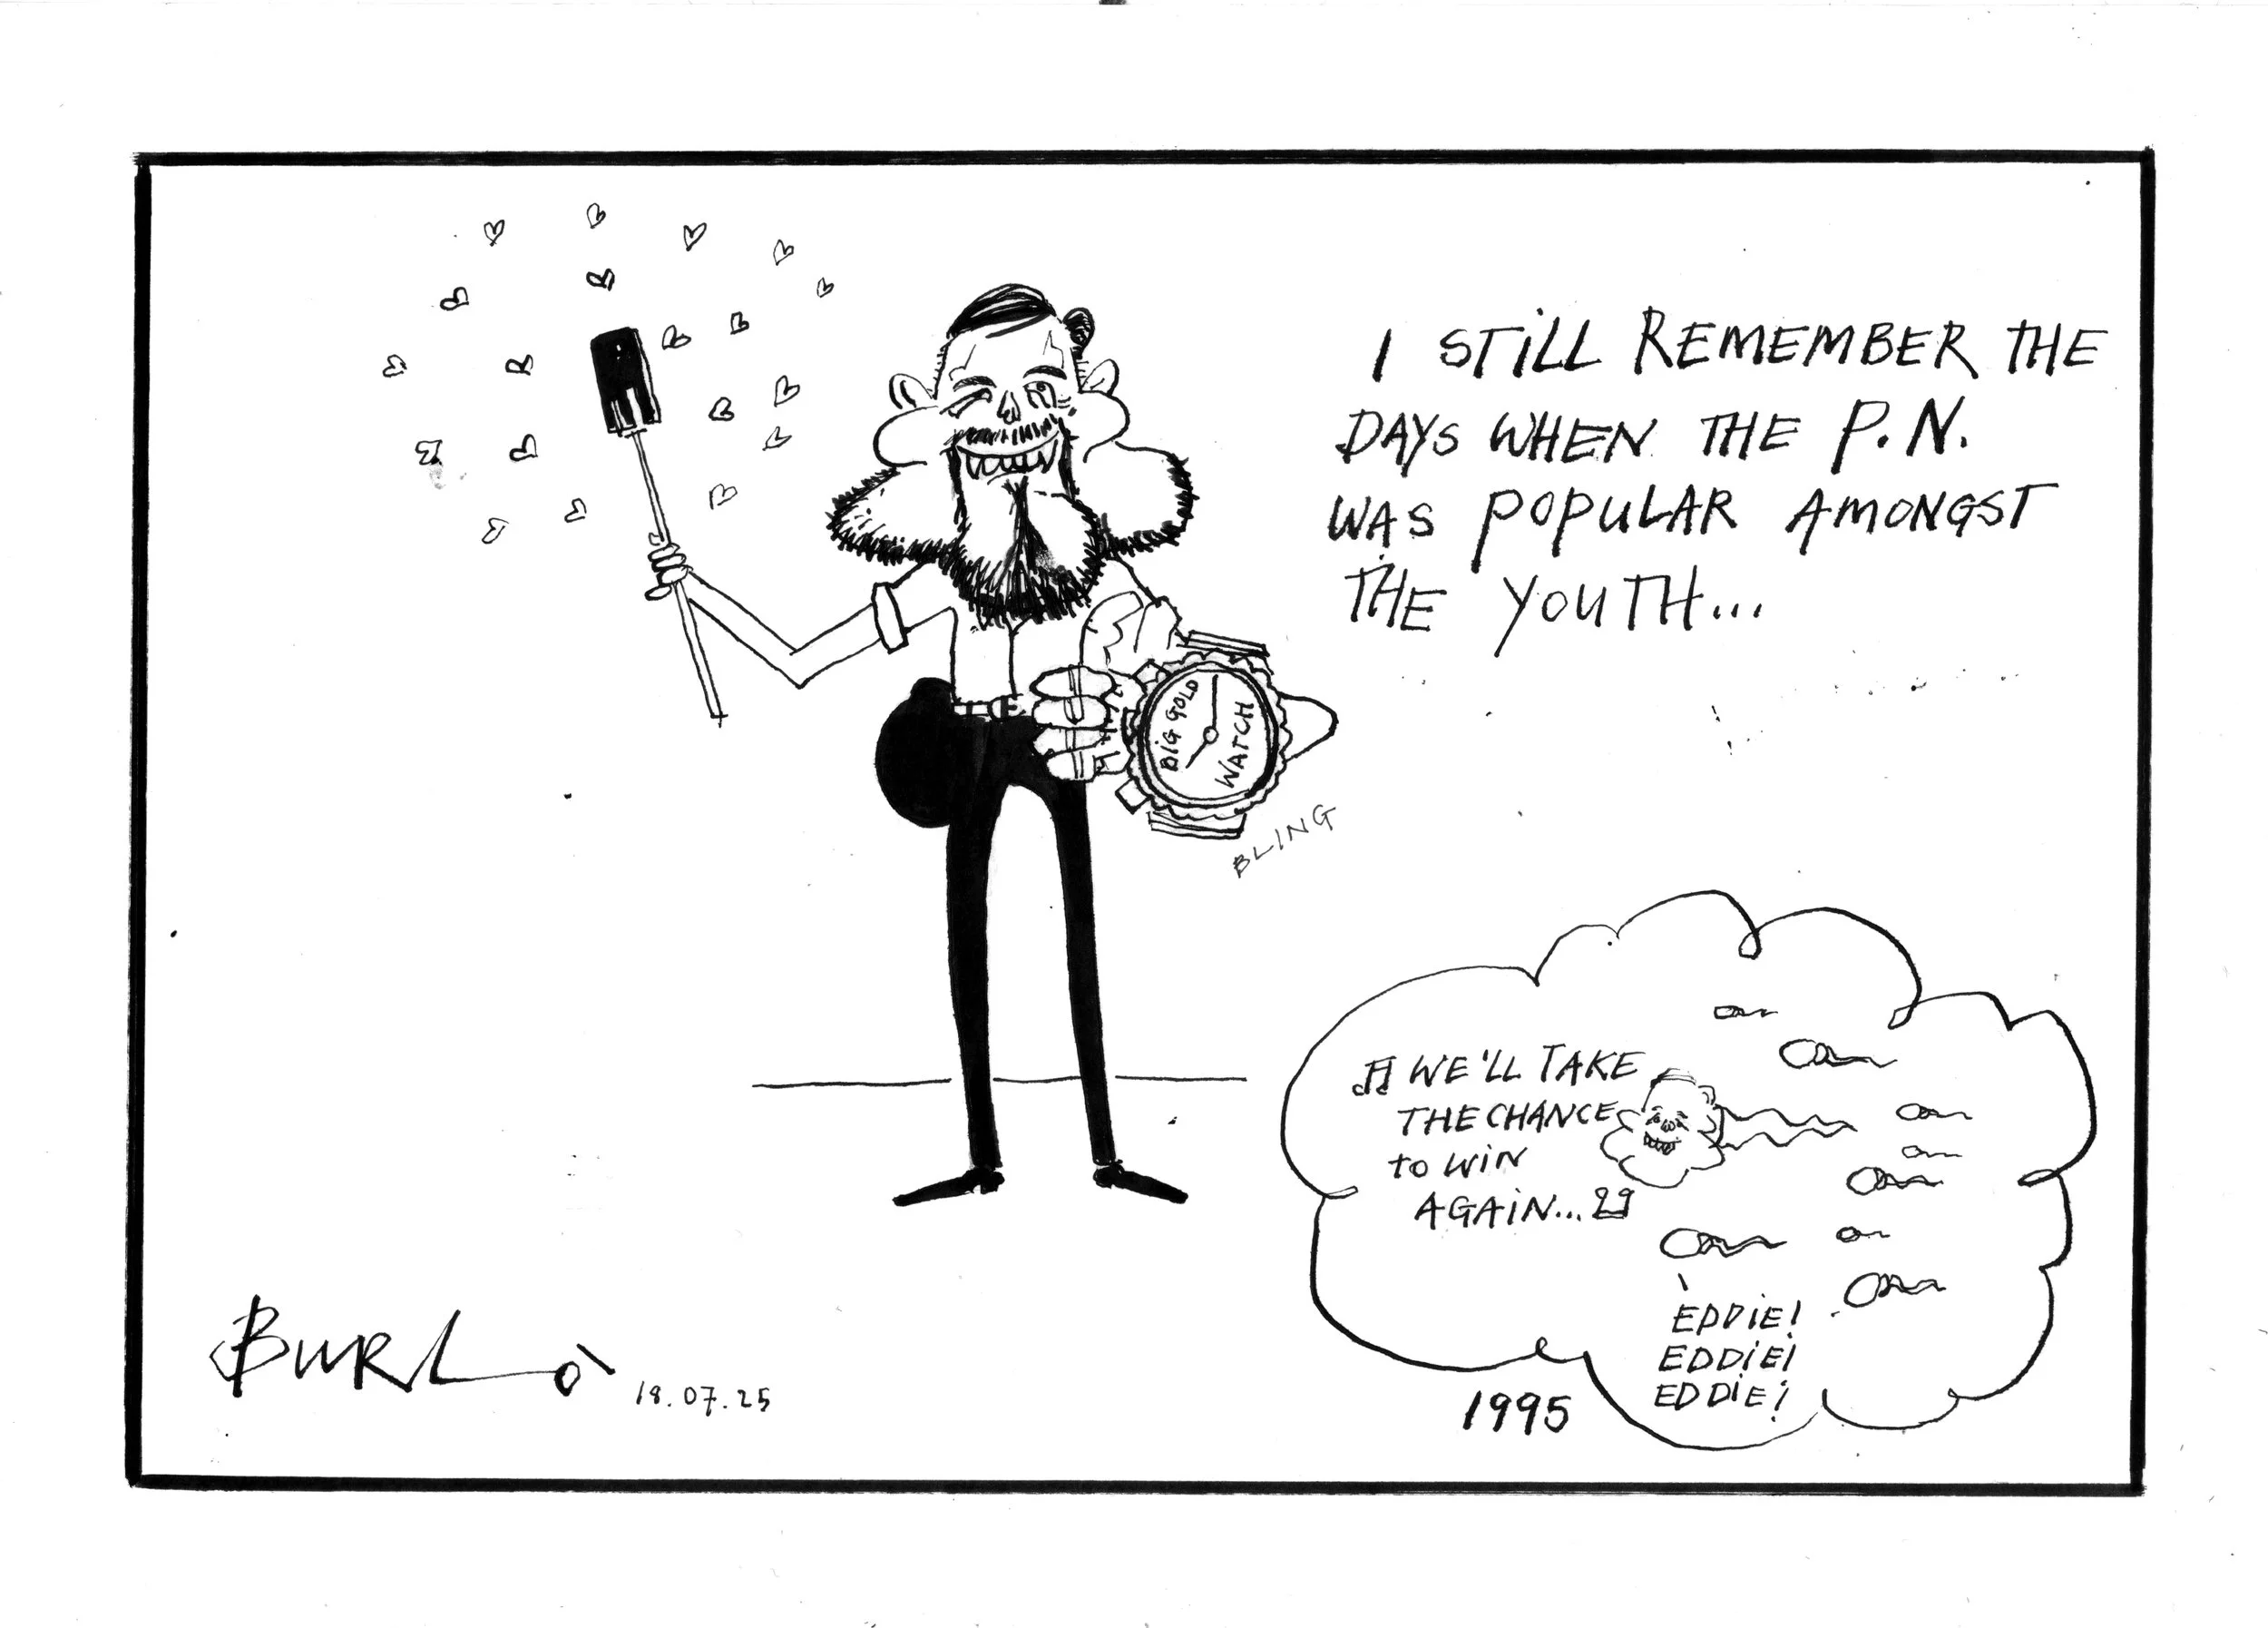 I STILL REMEMBER THE
DAYS WHEN THE P.N.
WAS POPULAR AMONGST
THE YOUTH...
BIG GOLD
WATCH
BLING
WE'LL TAKE
THE CHANCE
TO WIN
AGAIN...
EDDIE!
EDDIE!
EDDIE!
1995
BURLÒ
18.07.25